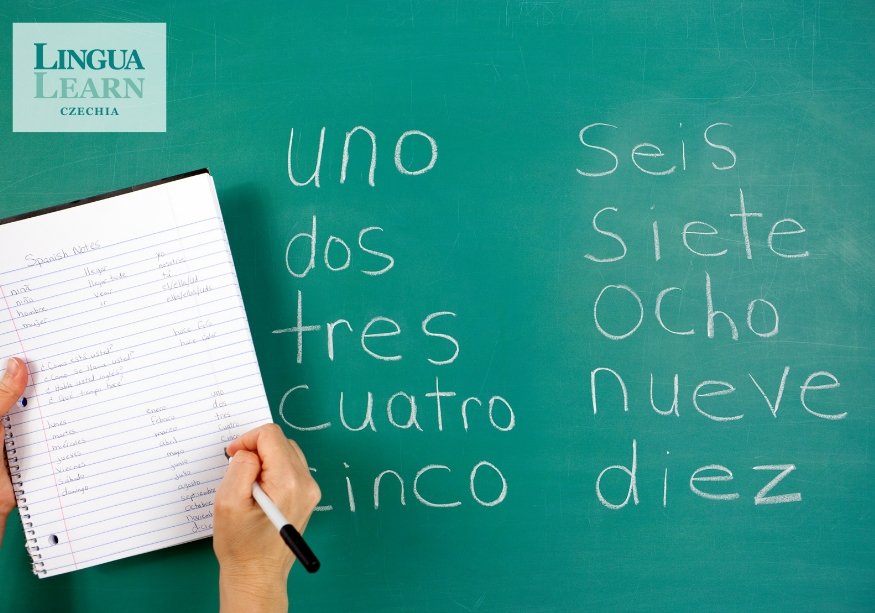 LINGUA
LEARN
CZECHIA
uno
dos
tres
cuatro
cinco
seis
siete
ocho
nueve
diez
Spanish Notes
niña
niño
hombre
mujer
llegar
llegar tarde
ir
yo
nosotros
tú
él/ella/ud.
ellos/ellas/uds.
¿Como está usted?
¿Como se llama usted?
¿Habla usted inglés?
¿Qué tiempo hace?
hace
hace calor
lunes
martes
miércoles
jueves
viernes
sábado
domingo
enero
febrero
marzo
abril
mayo
junio
julio
agosto
septiembre
octubre
uno
dos
tres
cuatro
cinco